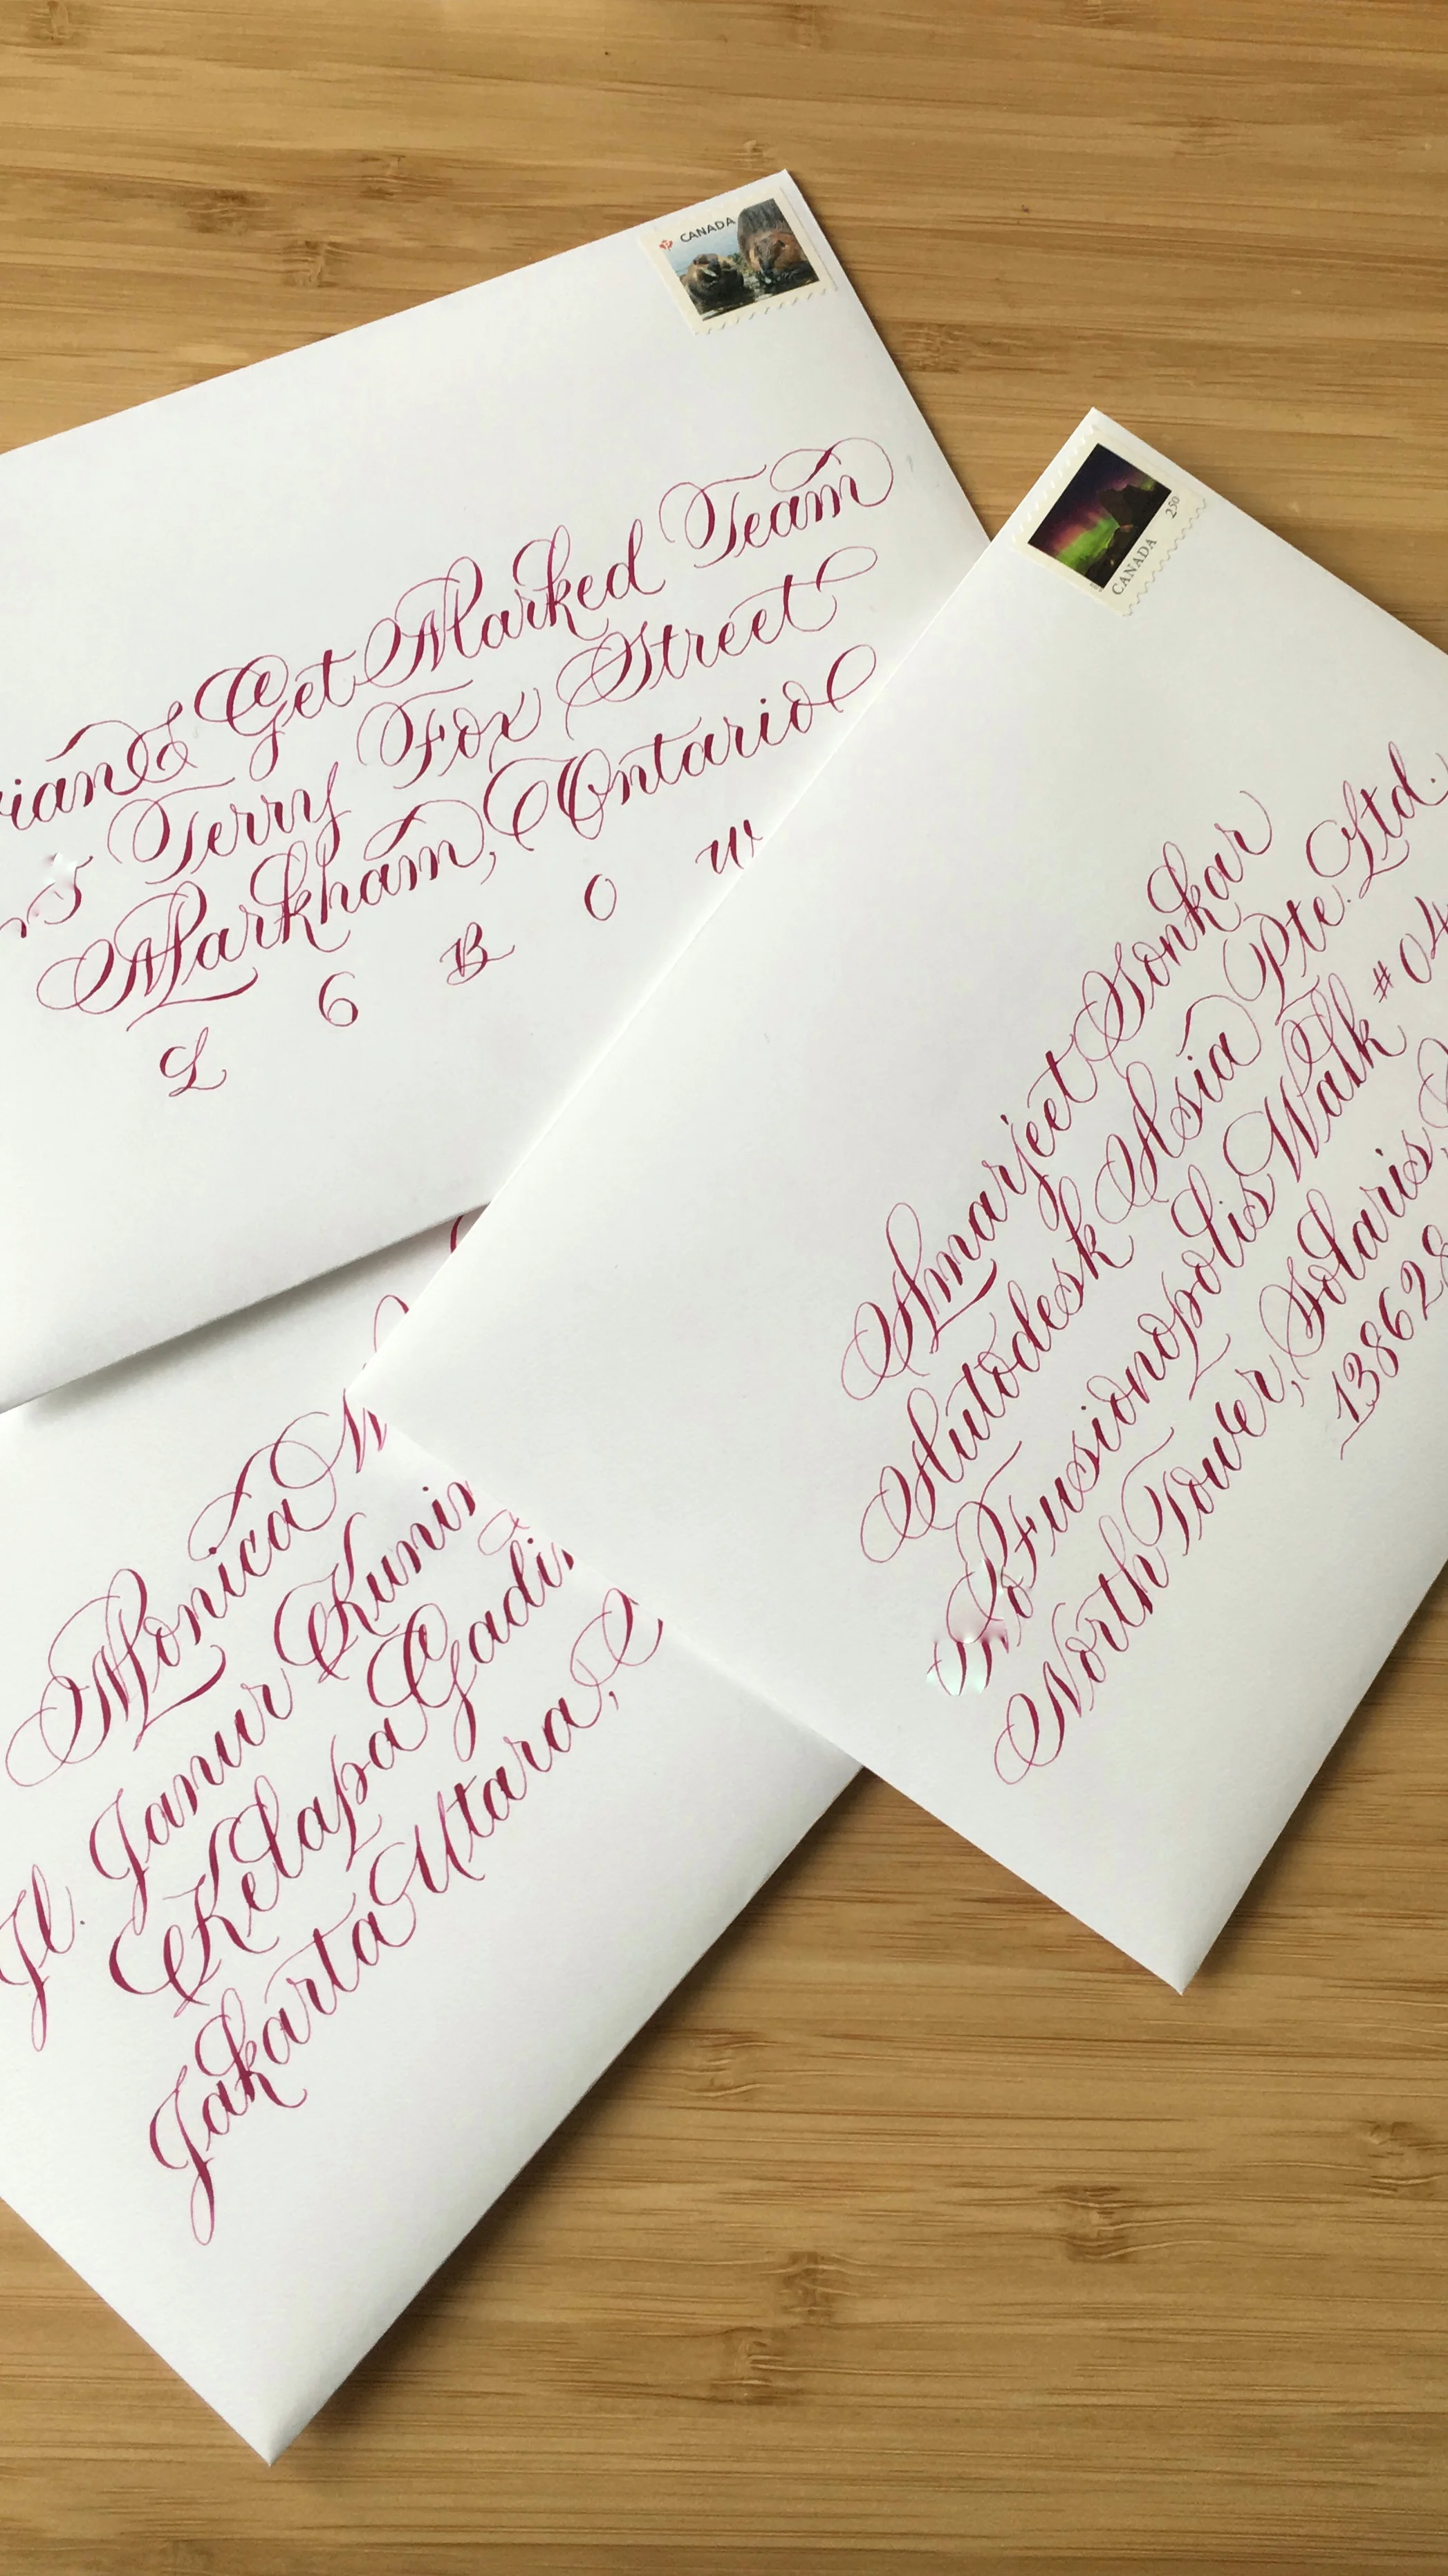 CANADA
& Get Marked Team
Terry Fox Street
Markham, Ontario
L 6 B 0 W
CANADA 2.50
Amarjeet Sonkar
Autodesk Asia Pte. Ltd.
Fusionopolis Walk #04
North Tower, Solaris,
138628
Monica
Jl. Janur
Kelapa
Jakarta Utara,